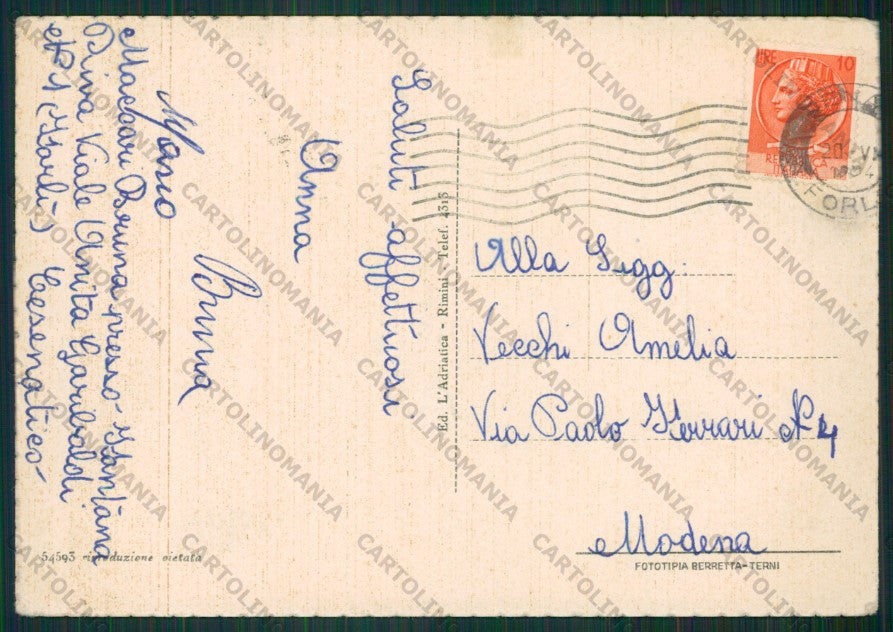 Saluti affettuosi.
Anna
Bruna
Mario
Maccari Bruna presso
Riva Viale Anita Garibaldi
N° 1 (Forlì) Cesenatico
Alla Sigg.
Vecchi Amelia
Via Paolo Ferrari N° 4
Modena
LIRE 10
REPUBBLICA
ITALIANA
FORLI
Ed. L'Adriatica - Rimini - Telef. 4313
54593 riproduzione vietata
FOTOTIPIA BERRETTA-TERNI
CARTOLINOMANIA